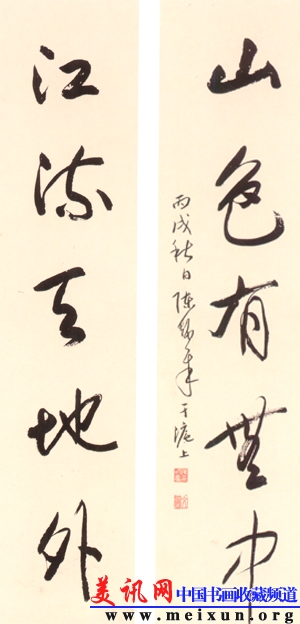 山色有無中
丙戌秋日陳 于滬上
江流天地外
美讯网 中国书画收藏频道
www.meixun.org